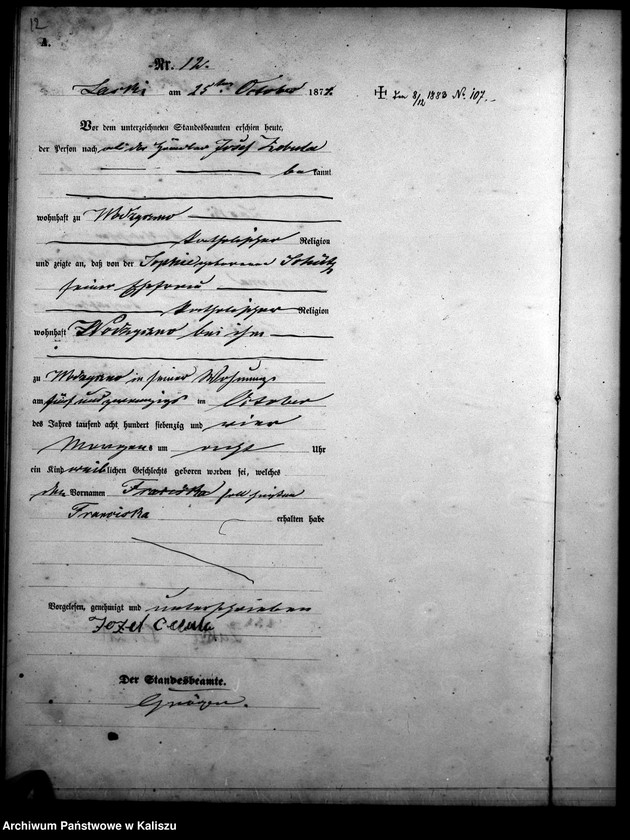 12
A.
Nr. 12.
am 25ten October 1874.
✝ den 8/12 1883 No. 107.
Vor dem unterzeichneten Standesbeamten erschien heute,
der Person nach, als der Händler Josef
bekannt
wohnhaft zu
katholischer Religion
und zeigte an, daß von der Sophie geborenen
seiner Ehefrau
katholischer Religion
wohnhaft bei ihm
zu in seiner Wohnung
am fünf und zwanzigs im October
des Jahres tausend acht hundert siebenzig und vier
Morgens um acht Uhr
ein Kind weiblichen Geschlechts geboren worden sei, welches
den Vornamen
Franciska erhalten habe
Vorgelesen, genehmigt und unterschrieben
Jozef
Der Standesbeamte.
Archiwum Państwowe w Kaliszu